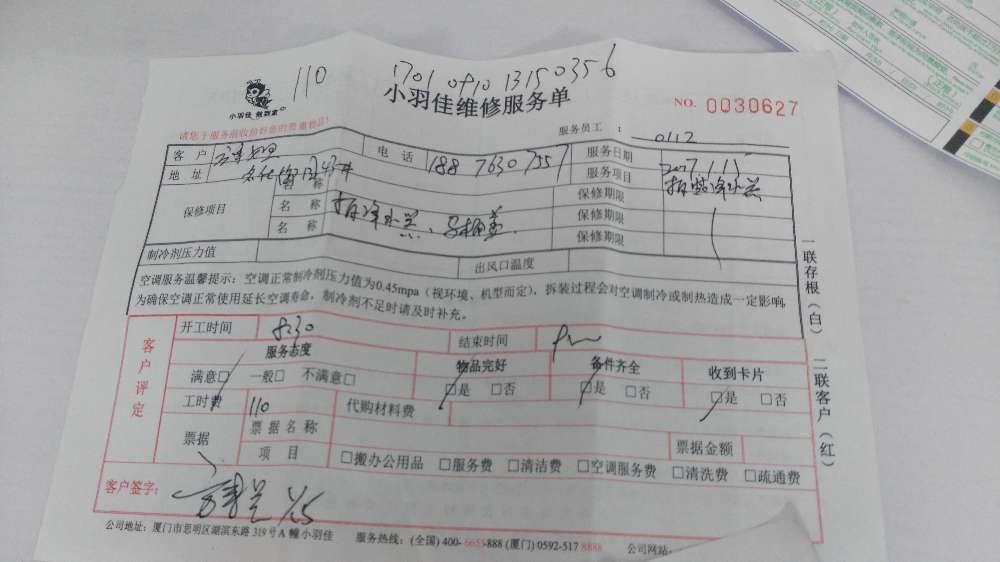 110
1701 0910 13150356
小羽佳 做到家
小羽佳维修服务单
NO. 0030627
请您于服务前收拾好您的贵重物品!
服务员工 : 0112
客户
电话 188 7630 7557
服务日期
地址
服务项目
保修项目
名称
保修期限
名称
保修期限
名称
保修期限
制冷剂压力值
出风口温度
空调服务温馨提示:空调正常制冷剂压力值为0.45mpa(视环境、机型而定),拆装过程会对空调制冷或制热造成一定影响,
为确保空调正常使用延长空调寿命,制冷剂不足时请及时补充。
一联存根(白) 二联客户(红)
客户评定
开工时间 8:30
结束时间
服务态度
物品完好
备件齐全
收到卡片
满意□ 一般□ 不满意□
□是 □否
□是 □否
□是 □否
工时费 110
代购材料费
票据
票据名称
票据金额
项目
□搬办公用品 □服务费 □清洁费 □空调服务费 □清洗费 □疏通费
客户签字: 1/15
公司地址:厦门市思明区湖滨东路 319 号 A 幢小羽佳
服务热线:(全国) 400- 6655-888 (厦门) 0592-517 8888
公司网站: